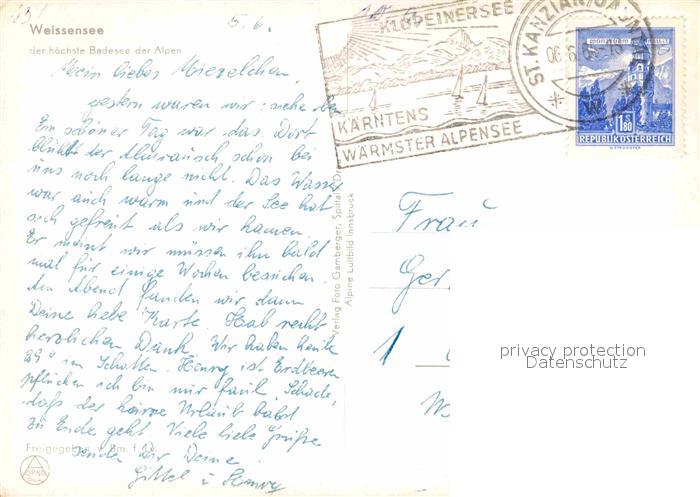 5.6.
Weissensee
der höchste Badesee der Alpen
Mein liebes Mierzelchen,
gestern waren wir: siehe oben
Ein schöner Tag war das. Dort
blüht der Almrausch schon bei
uns noch lange nicht. Das Wasser
war auch warm und der See hat
sich gefreut als wir kamen.
Er meint wir müssen ihn bald
mal für einige Wochen besuchen.
Am Abend fanden wir dann
Deine liebe Karte. Hab recht
herzlichen Dank. Wir haben heute
29° im Schatten. ist Erdbeeren
pflücken ich bin nur faul. Schade,
daß der Urlaub bald
zu Ende geht. Viele liebe Grüße
senden Dir Deine
Gittel u.
Freigegeben v. Bm. f.
ALPINE
Verlag Foto Gamberger, Spittal/Drau
Alpine Luftbild Innsbruck
KLOPEINERSEE
KÄRNTENS
WÄRMSTER ALPENSEE
ST. KANZIAN/
06.6.
1.80
S
REPUBLIK ÖSTERREICH
Frau
Ger
1
W
privacy protection
Datenschutz